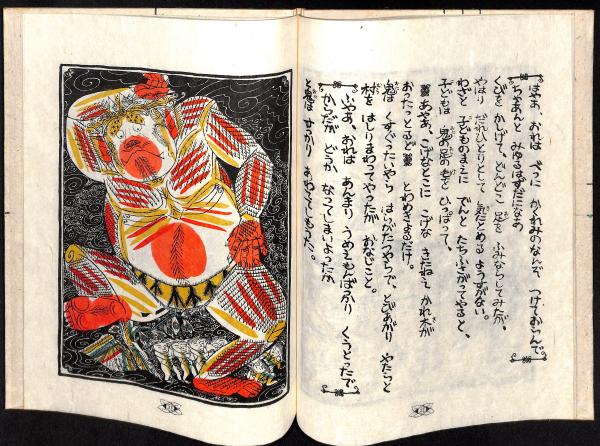 ほやあ、おれは べつに かくれみのなんぞ つけておらんで。
ちゃあんと みゆるはずだになあ
くびを かしげて、どんどこ 足を ふみならしてみたが、
やはり だれひとりとして 気にとめる ようすがない。
わざと 子どものまえに でんと たちふさがってやると、
子どもは 鬼の足の毛を ひっぱって、
あやあ、こげなとこに こげな きたねえ かれ木が
おったっとるど
と わめきよるだけ。
鬼は くすぐったいやら はらがたつやらで、とびあがり やたらと
村を はしりまわってやったが おなじこと。
ふやあ、おれは あんまり うめえもんばかり くうとったで
からだが どうか なってしまいよったか
と鬼は すっかり あわててしもうた。